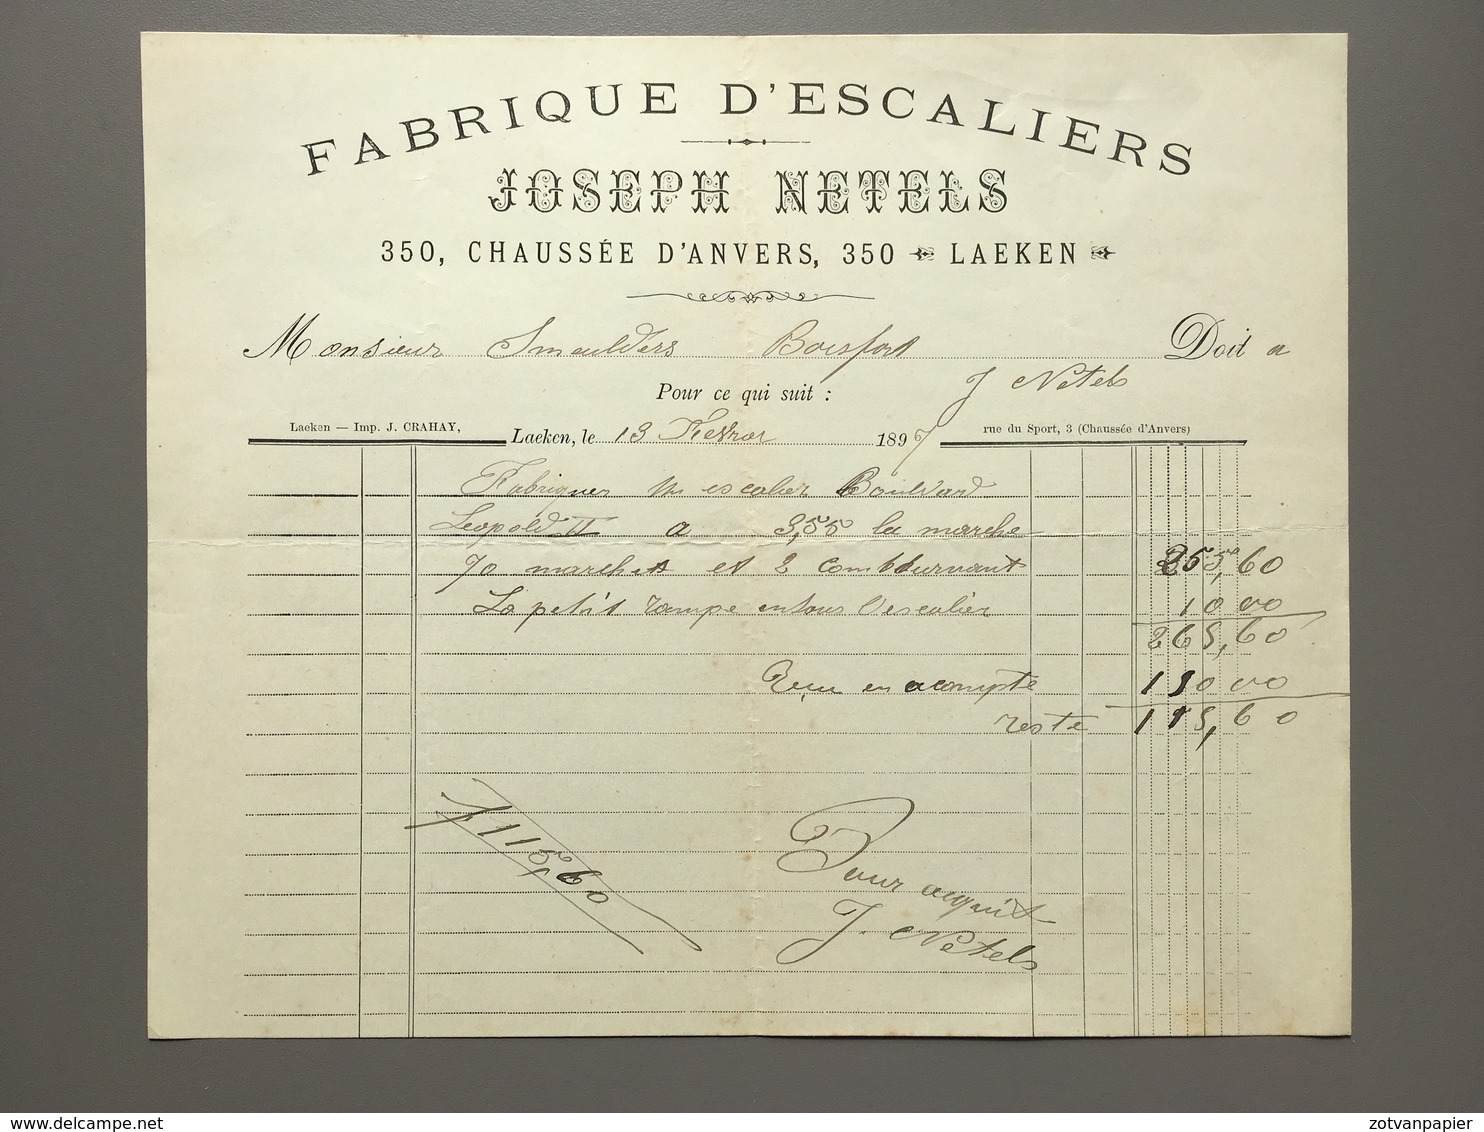 FABRIQUE D'ESCALIERS
JOSEPH NETELS
350, CHAUSSÉE D'ANVERS, 350 LAEKEN
Monsieur Smeulders Boisfort Doit a
Pour ce qui suit : J Netels
Laeken — Imp. J. CRAHAY, Laeken, le 13 Fevrer 1897 rue du Sport, 3 (Chaussée d'Anvers)
Fabriquer un escalier Boulvard
Leopold II a 3,55 la marche
70 marches et 2 255,60
La petit rampe entour l'escalier 10 00
265,60
Recu en acompte 150 00
reste 115,60
f 115,60
Pour acquit
J. Netels
www.delcampe.net
zotvanpapier